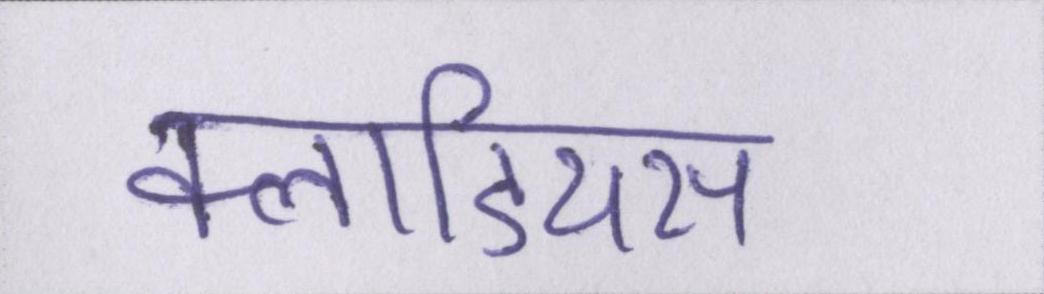 क्लाडियस